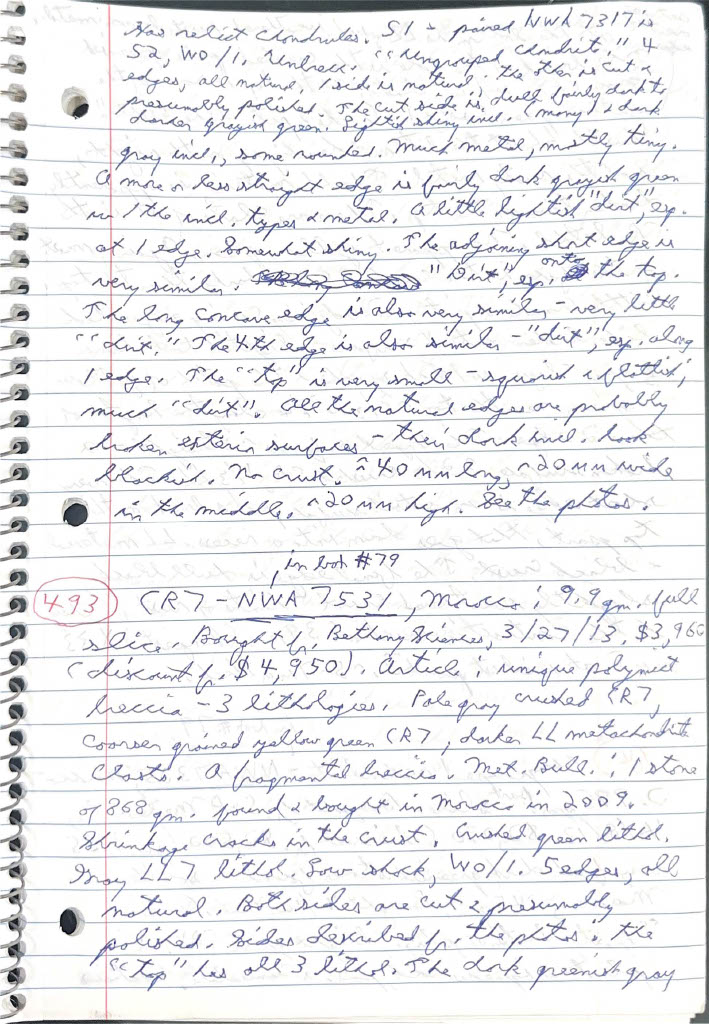 Has relict chondrules. S1 - paired NWA 7317 is
S2, W0/1. Unbrecc. "Ungrouped chondrite." 4
edges, all natural. 1 side is natural. the other is cut &
presumably polished. The cut side is dull fairly dark to
darker grayish green. Lightish shiny incl. (many) & dark
gray incl., some rounded. Much metal, mostly tiny.
A more or less straight edge is fairly dark grayish green
w/ the incl. types & metal. A little lightish "dirt", esp.
at 1 edge. Somewhat shiny. The adjoining short edge is
very similar. "Dirt", esp. onto the top.
The long concave edge is also very similar - very little
"dirt." The 4th edge is also similar - "dirt", esp. along
1 edge. The "top" is very small - squarish & flattish;
much "dirt". All the natural edges are probably
broken exterior surfaces - their dark incl. look
blackish. No crust. ~40 mm long, ~20 mm wide
in the middle, ~20 mm high. See the photos.
, in box #79
493 CR7 - NWA 7531, Morocco; 9.9 gm. full
slice. Bought fr. Bethany Sciences, 3/27/13, $3,960
(discount fr. $4,950). Article: unique polymict
breccia - 3 lithologies. Pale gray crushed CR7,
coarser grained yellow green CR7, darker LL metachondrite
clasts. A fragmental breccia. Met. Bull.: 1 stone
of 868 gm. found & bought in Morocco in 2009.
Shrinkage cracks in the crust. Crushed green lithol.
Gray LL7 lithol. Low shock, W0/1. 5 edges, all
natural. Both sides are cut & presumably
polished. Sides described fr. the photos. the
"top" has all 3 lithol. The dark greenish gray